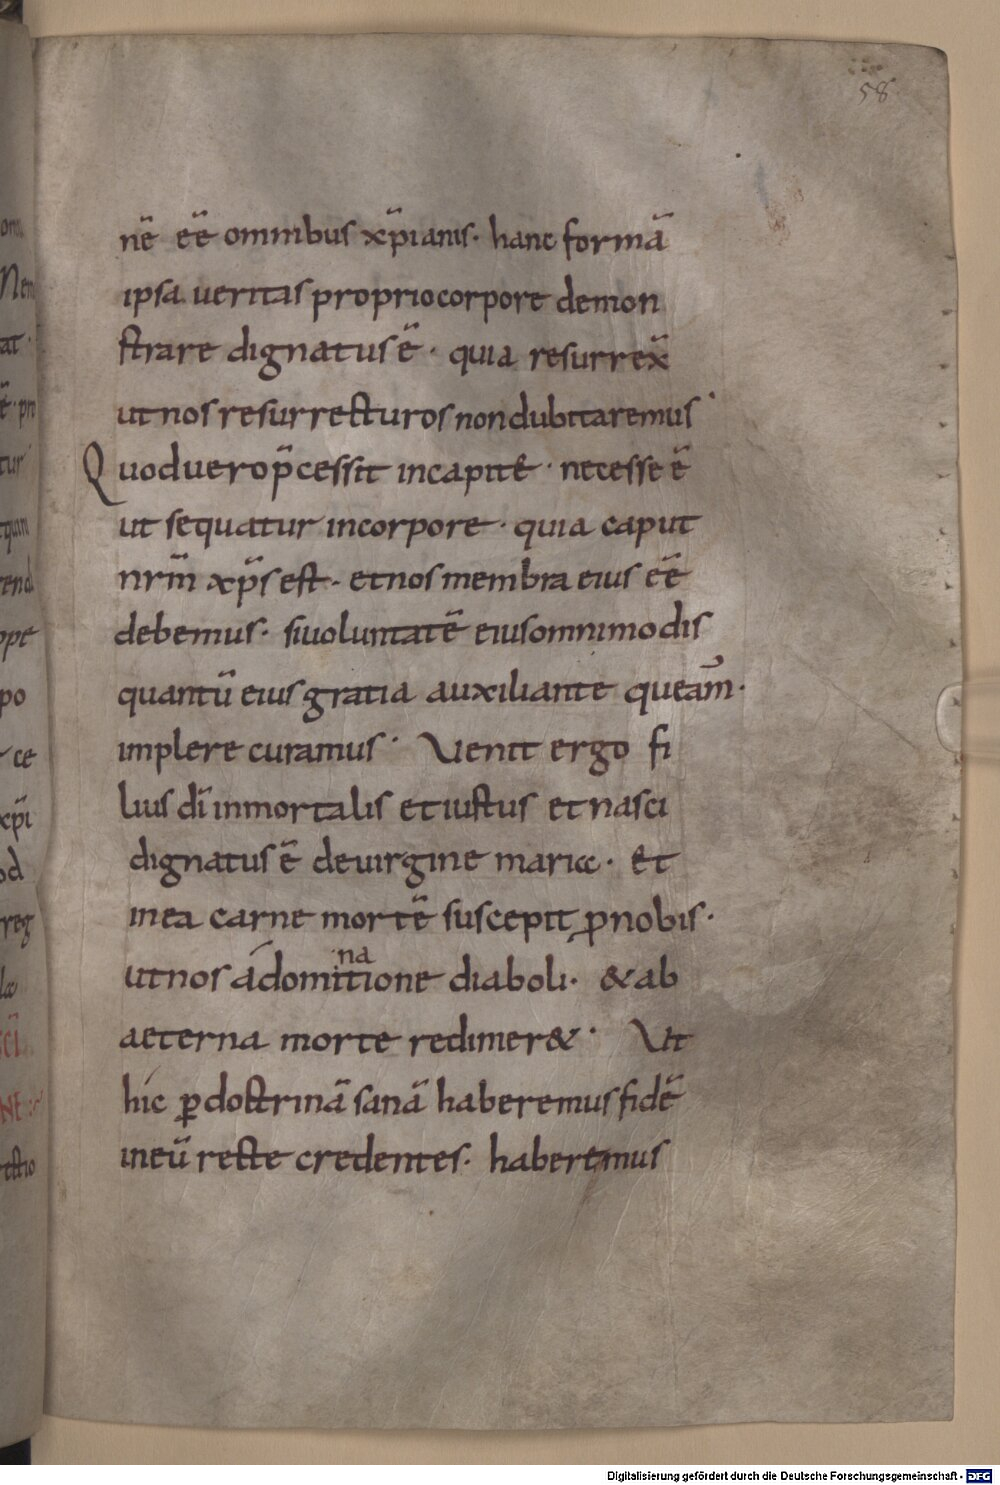 58
nē eē omnibus xp̄ianis· hanc formā
ipsa veritas propriocorpore demon
strare dignatus ē· quia resurrex̄
ut nos resurrecturos non dubitaremus·
Quod vero p̄cessit in capite· necesse ē
ut sequatur incorpore· quia caput
nrm̄ xp̄s est· et nos membra eius eē
debemus· si voluntatē eius omnimodis
quantū eius gratia auxiliante queam̄·
implere curamus· Venit ergo fi
lius dī inmortalis et iustus et nasci
dignatus ē de virgine mariae· Et
in ea carne mortē suscepit ꝓ nobis·
ut nos á domitnaione diaboli· & ab
aeterna morte redimer&· Ut
hic ꝑ doctrinā sanā haberemus fidē
in eū recte credentes· haberemus
Digitalisierung gefördert durch die Deutsche Forschungsgemeinschaft - DFG